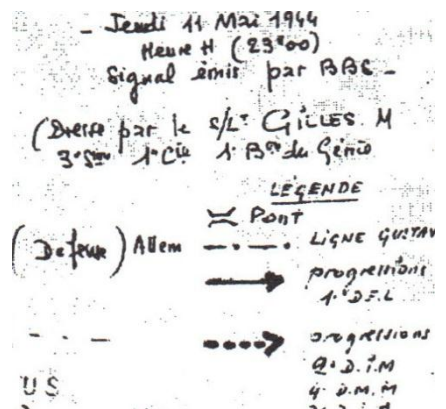 - Jeudi 11 Mai 1944
Heure H (23h00)
Signal émis par BBC -
(Dressé par le S/Lt GILLES. M
3e Son 1e Cie 1r Bon du Génie
LÉGENDE
Pont
LIGNE GUSTAV
(Défense) Allem
progressions
1e D.F.L
progressions
2e D.I.M
4e D.M.M
US